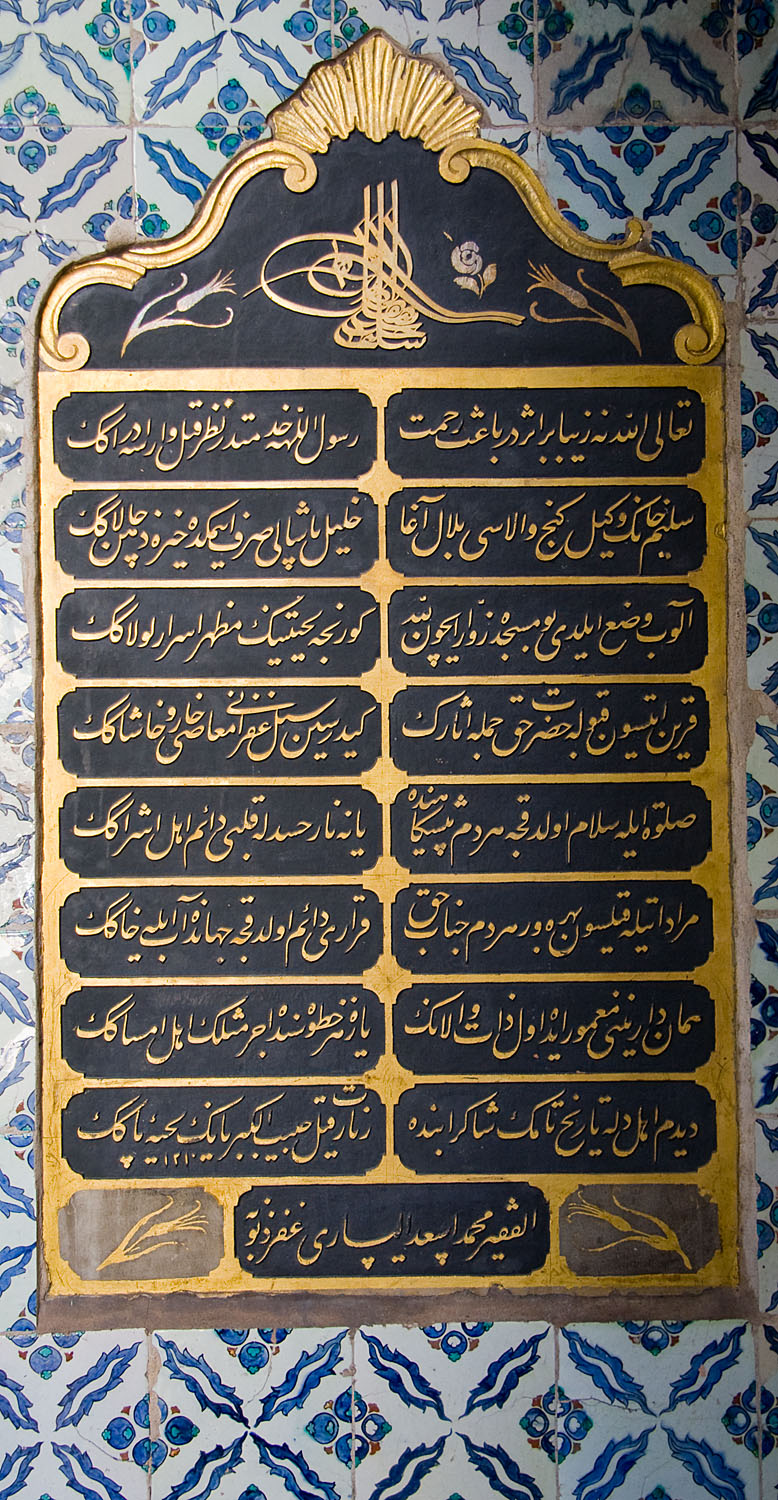 تعالی الله نه زیبا بر اثردر باعث رحمت رسول اللهه خدمتدر نظر قیل وار ایسه ادراکك
سلیم خانك وکیل کنج والاسی بلال آغا خلیل پاشالی صرف ایمکده خیره چالاکك
آلوب وضع ایلدی بو مسجده زوار ایچون لله کورنجه لحیه‌سنك مظهر اسرار لولاکك
قرین ایتسون قبوله حضرت حق جمله آثارك کیدرسین سیل غفرانی معاصی خار و خاشاکك
صلوة ایله سلام اولدقجه هردم پیشکاهنده یانه نار حسدله قلبی دائم اهل اشراکك
مرادات ایله قیلسون بهره‌ور هردم جناب حق قراری دائم اولدقجه جهانده آب ایله خاکك
همان دارینی معمور ایده اول ذات والانك یازه هر خطوه‌سنده اجر مثلك اهل امساکك
دیدم اهل دله تاریخ تامك شاکرا بنده زیارت قیل حبیب اکبریانك لحیهٔ پاکك ١٢١٠
الفقیر محمد اسعد الیساری غفر ذنوبه